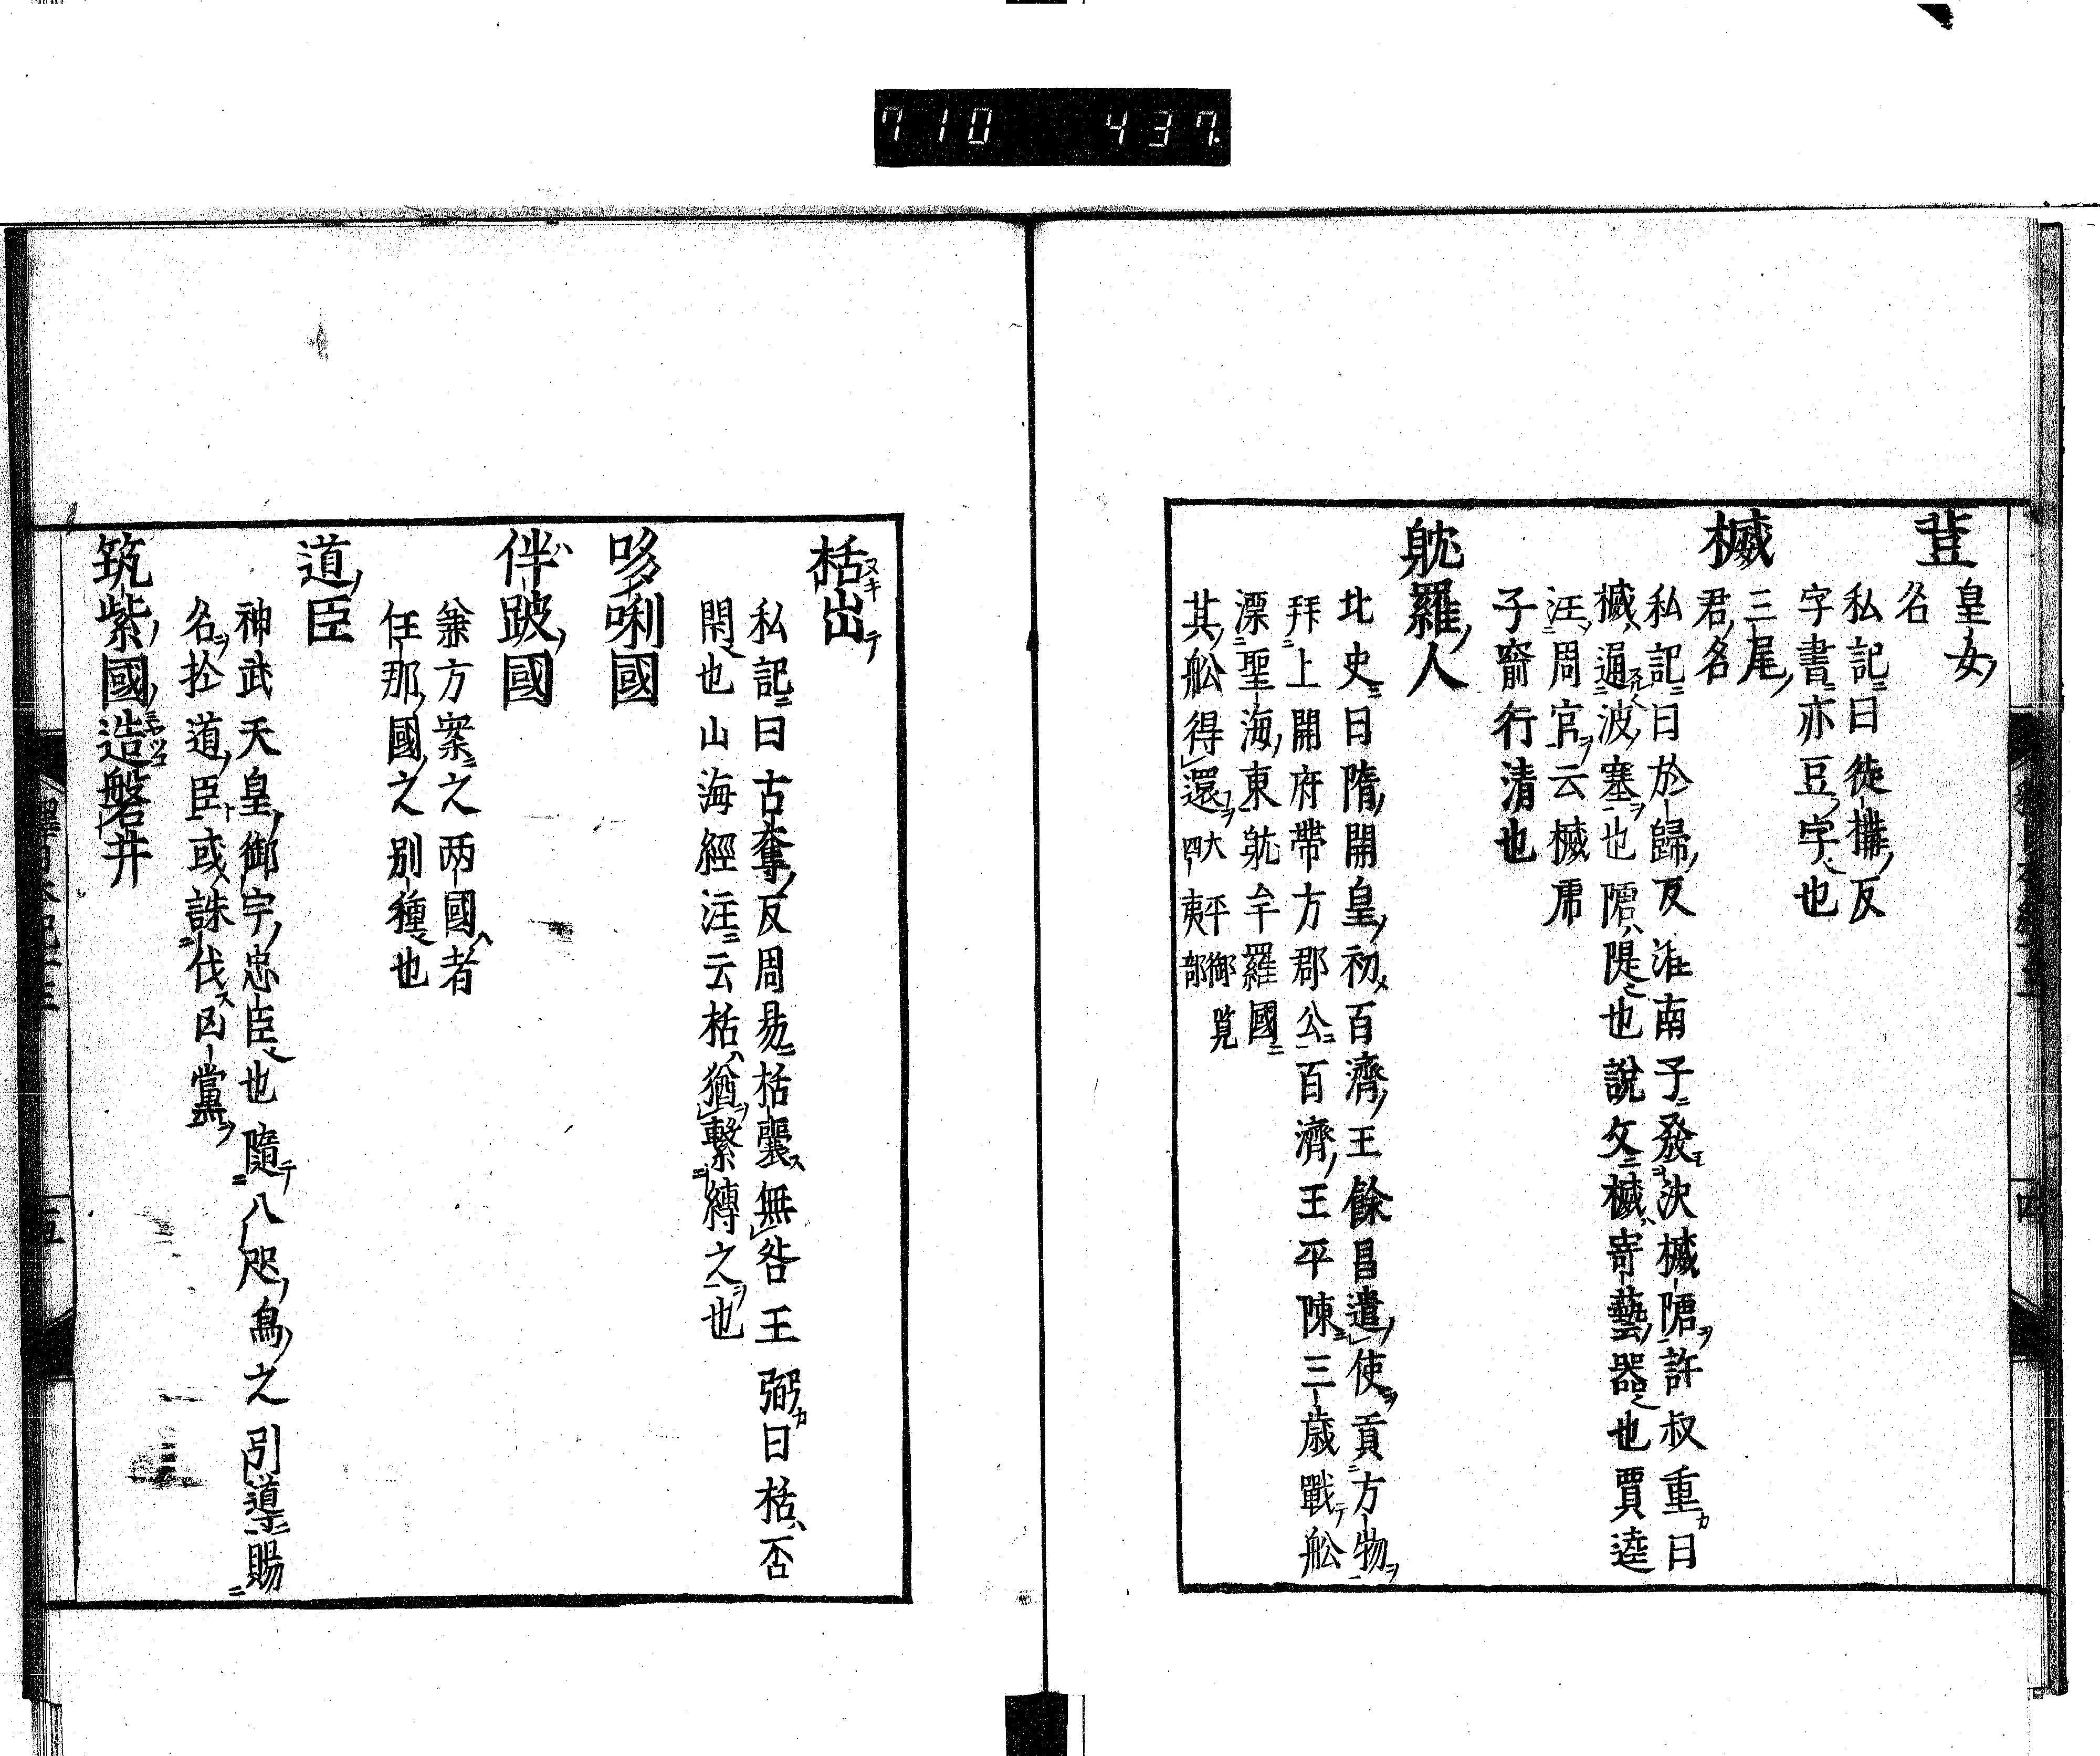 710 437
荳
皇女
名
私記曰徒構反
字書亦豆字也
楲
三尾
君名
私記曰於歸反淮南子發決楲隌許叔重曰
楲通波塞也隌隄也說文楲寄藝器也賈逵
注周官云楲乕
子窬行清也
躭羅人
北史曰隋開皇初百濟王餘昌遣使貢方物
拜上開府帶方郡公百濟王平陳三歲戰舩
漂聖海東躭牟羅國
其舩得還大平御覧
四夷部
栝出
私記曰古奪反周易栝囊無咎王弼曰栝否
閑也山海經注云栝猶繫縛之也
哆唎國
伴跛國
兼方案之兩國者
任那國之別種也
道臣
神武天皇御宇忠臣也隨八咫烏之引導賜
名於道臣或誅伐凶黨
筑紫國造磐井
四
五